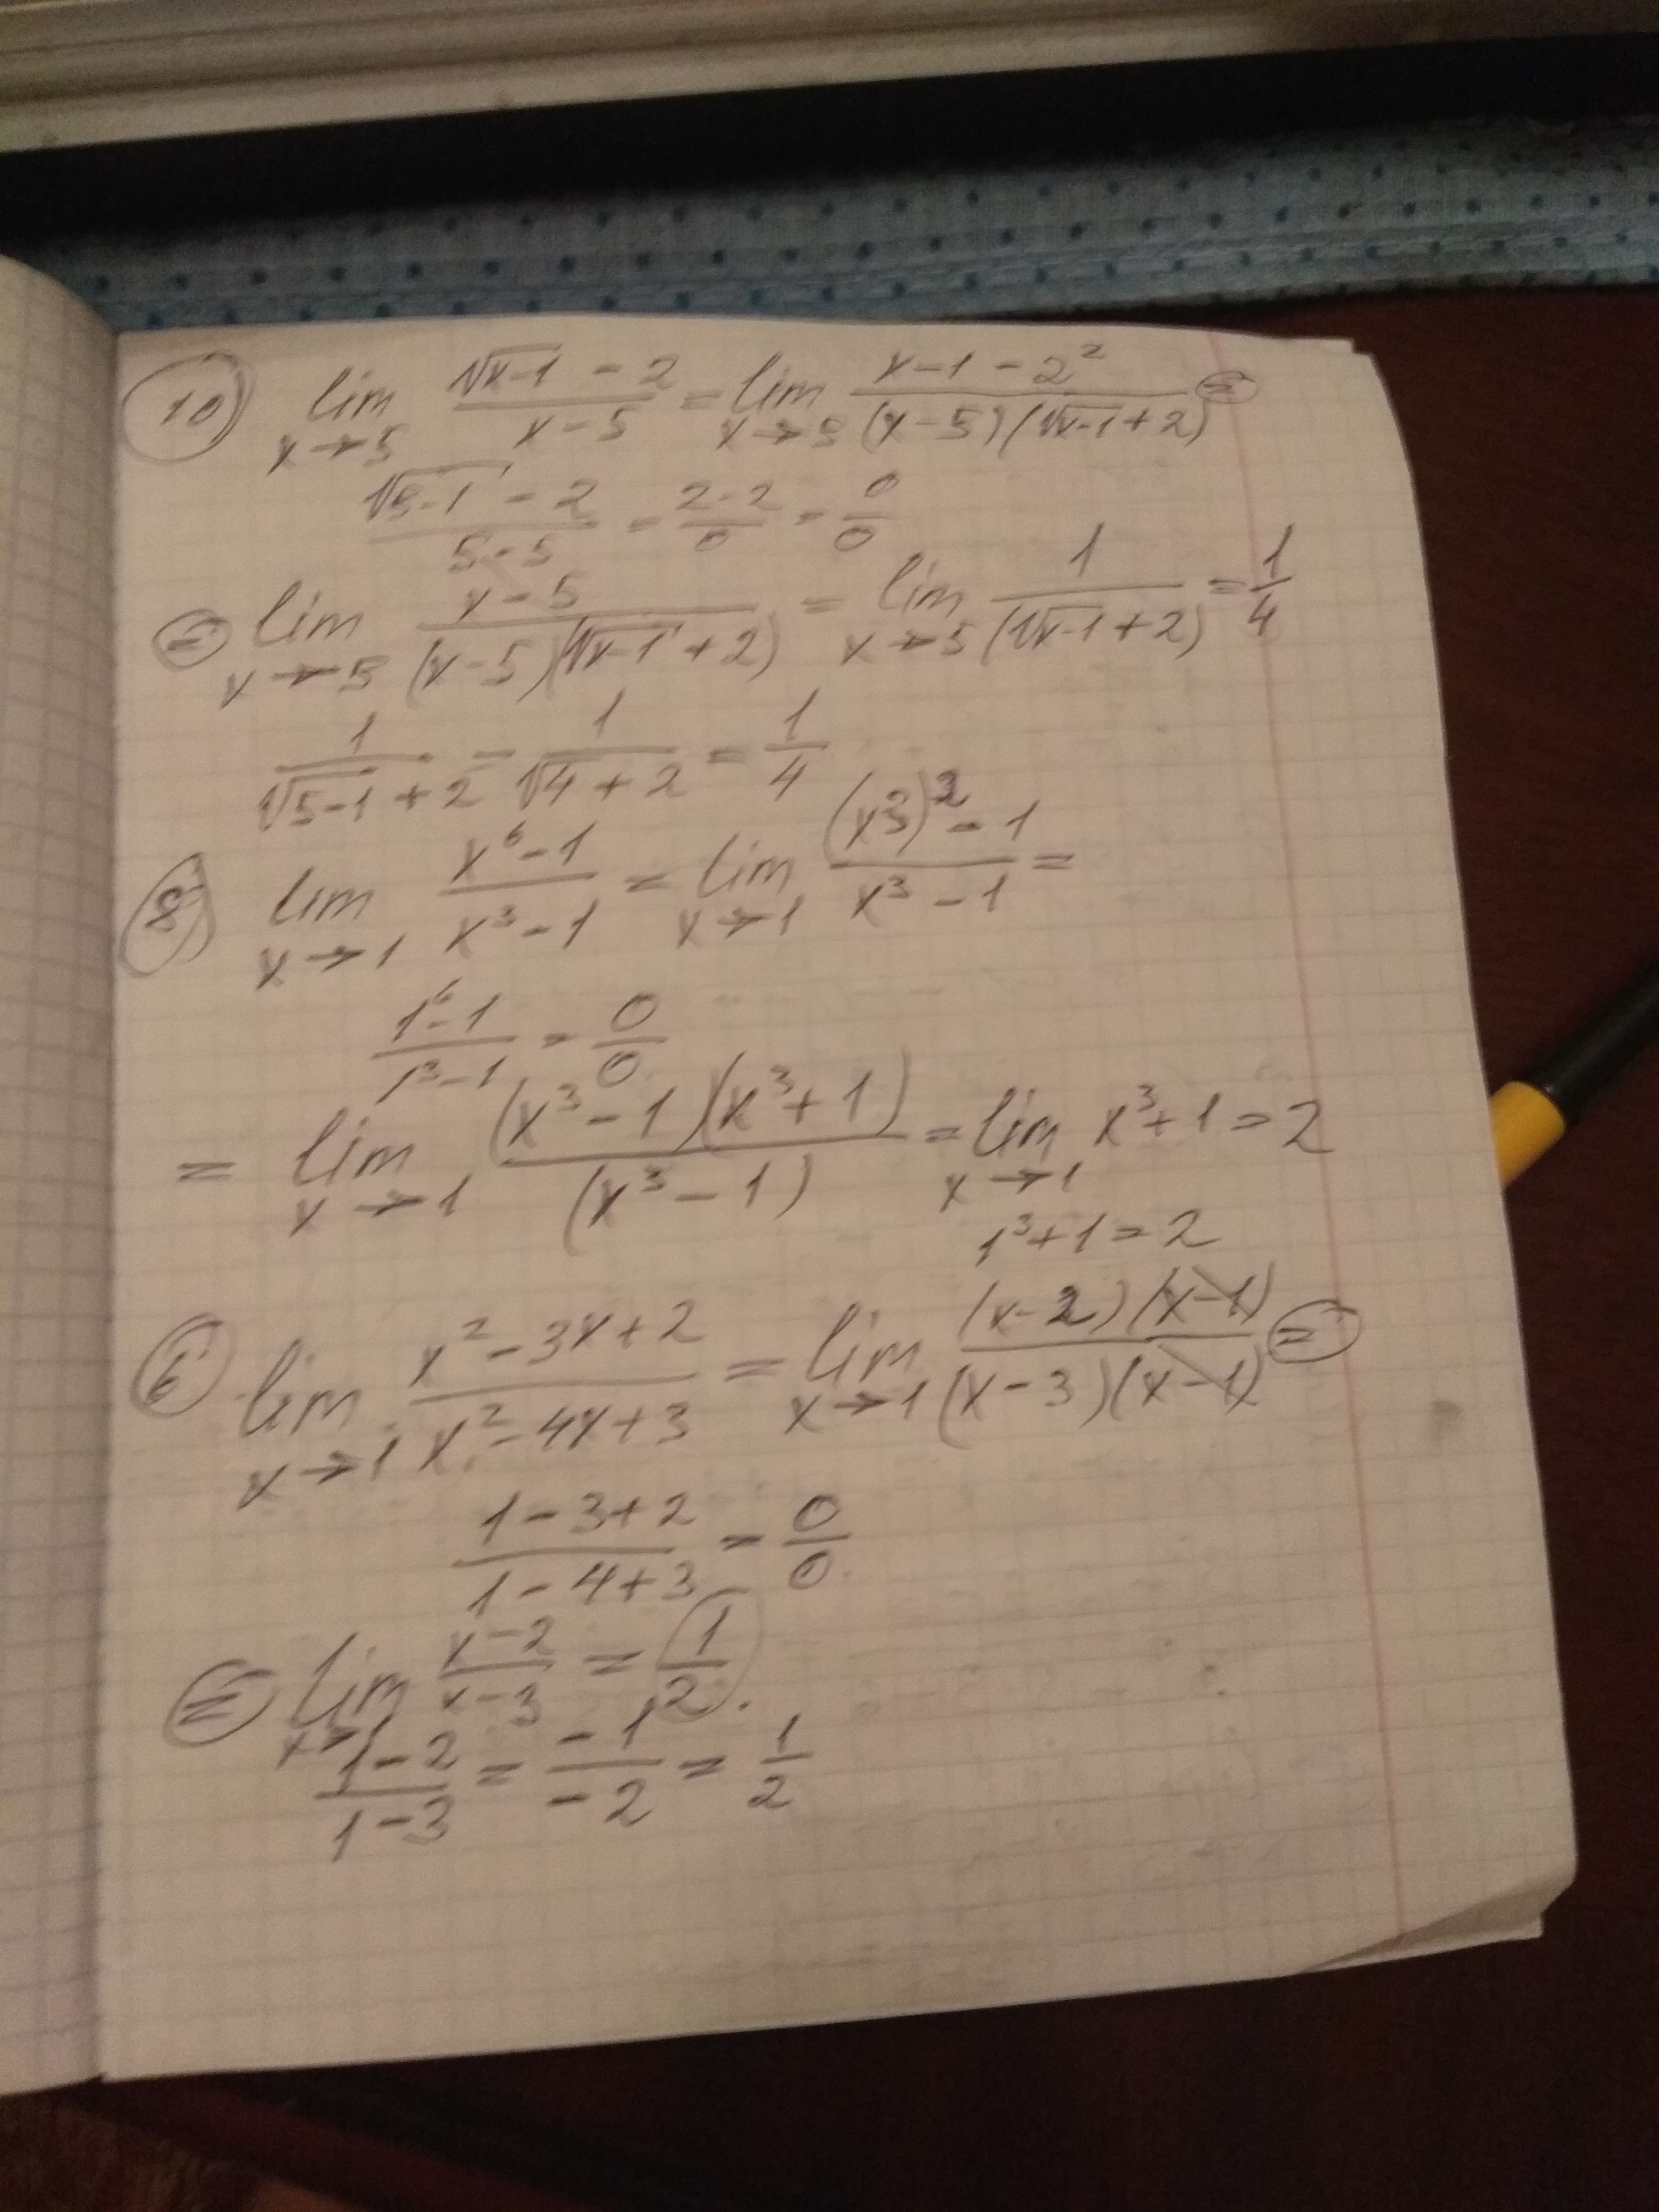 10) lim x→5 (√(x-1) - 2)/(x-5) = lim x→5 (x-1-2²)/((x-5)(√(x-1)+2)) =
(√(5-1) - 2)/(5-5) = (2-2)/0 = 0/0
= lim x→5 (x-5)/((x-5)(√(x-1)+2)) = lim x→5 1/(√(x-1)+2) = 1/4
1/(√(5-1)+2) = 1/(√4+2) = 1/4
8) lim x→1 (x⁶-1)/(x³-1) = lim x→1 ((x³)²-1)/(x³-1) =
(1⁶-1)/(1³-1) = 0/0
= lim x→1 ((x³-1)(x³+1))/(x³-1) = lim x→1 x³+1 = 2
1³+1=2
6) lim x→1 (x²-3x+2)/(x²-4x+3) = lim x→1 ((x-2)(x-1))/((x-3)(x-1)) =
(1-3+2)/(1-4+3) = 0/0
= lim x→1 (x-2)/(x-3) = 1/2.
(1-2)/(1-3) = (-1)/(-2) = 1/2